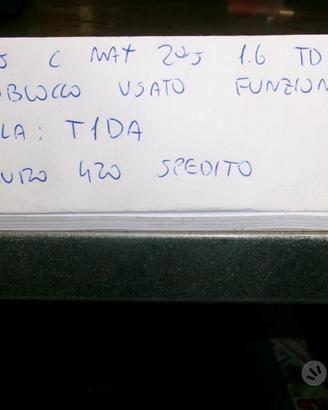 C MAX 2005 1.6 TD
OBLOCCO USATO FUNZION
LA: T1DA
420 SPEDITO